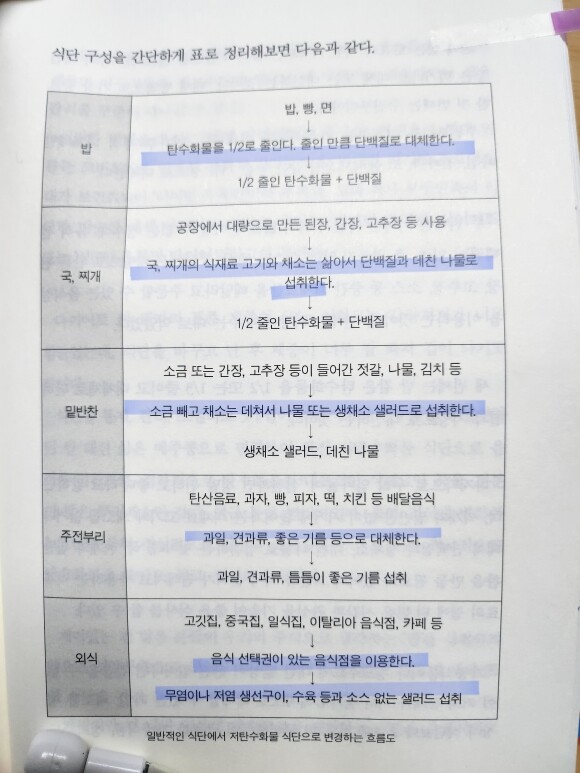 식단 구성을 간단하게 표로 정리해보면 다음과 같다.
밥
밥, 빵, 면
↓
탄수화물을 1/2로 줄인다. 줄인 만큼 단백질로 대체한다.
↓
1/2 줄인 탄수화물 + 단백질
국, 찌개
공장에서 대량으로 만든 된장, 간장, 고추장 등 사용
↓
국, 찌개의 식재료 고기와 채소는 삶아서 단백질과 데친 나물로
섭취한다.
↓
1/2 줄인 탄수화물 + 단백질
밑반찬
소금 또는 간장, 고추장 등이 들어간 젓갈, 나물, 김치 등
↓
소금 빼고 채소는 데쳐서 나물 또는 생채소 샐러드로 섭취한다.
↓
생채소 샐러드, 데친 나물
주전부리
탄산음료, 과자, 빵, 피자, 떡, 치킨 등 배달음식
↓
과일, 견과류, 좋은 기름 등으로 대체한다.
↓
과일, 견과류, 틈틈이 좋은 기름 섭취
외식
고깃집, 중국집, 일식집, 이탈리아 음식점, 카페 등
↓
음식 선택권이 있는 음식점을 이용한다.
↓
무염이나 저염 생선구이, 수육 등과 소스 없는 샐러드 섭취
일반적인 식단에서 저탄수화물 식단으로 변경하는 흐름도